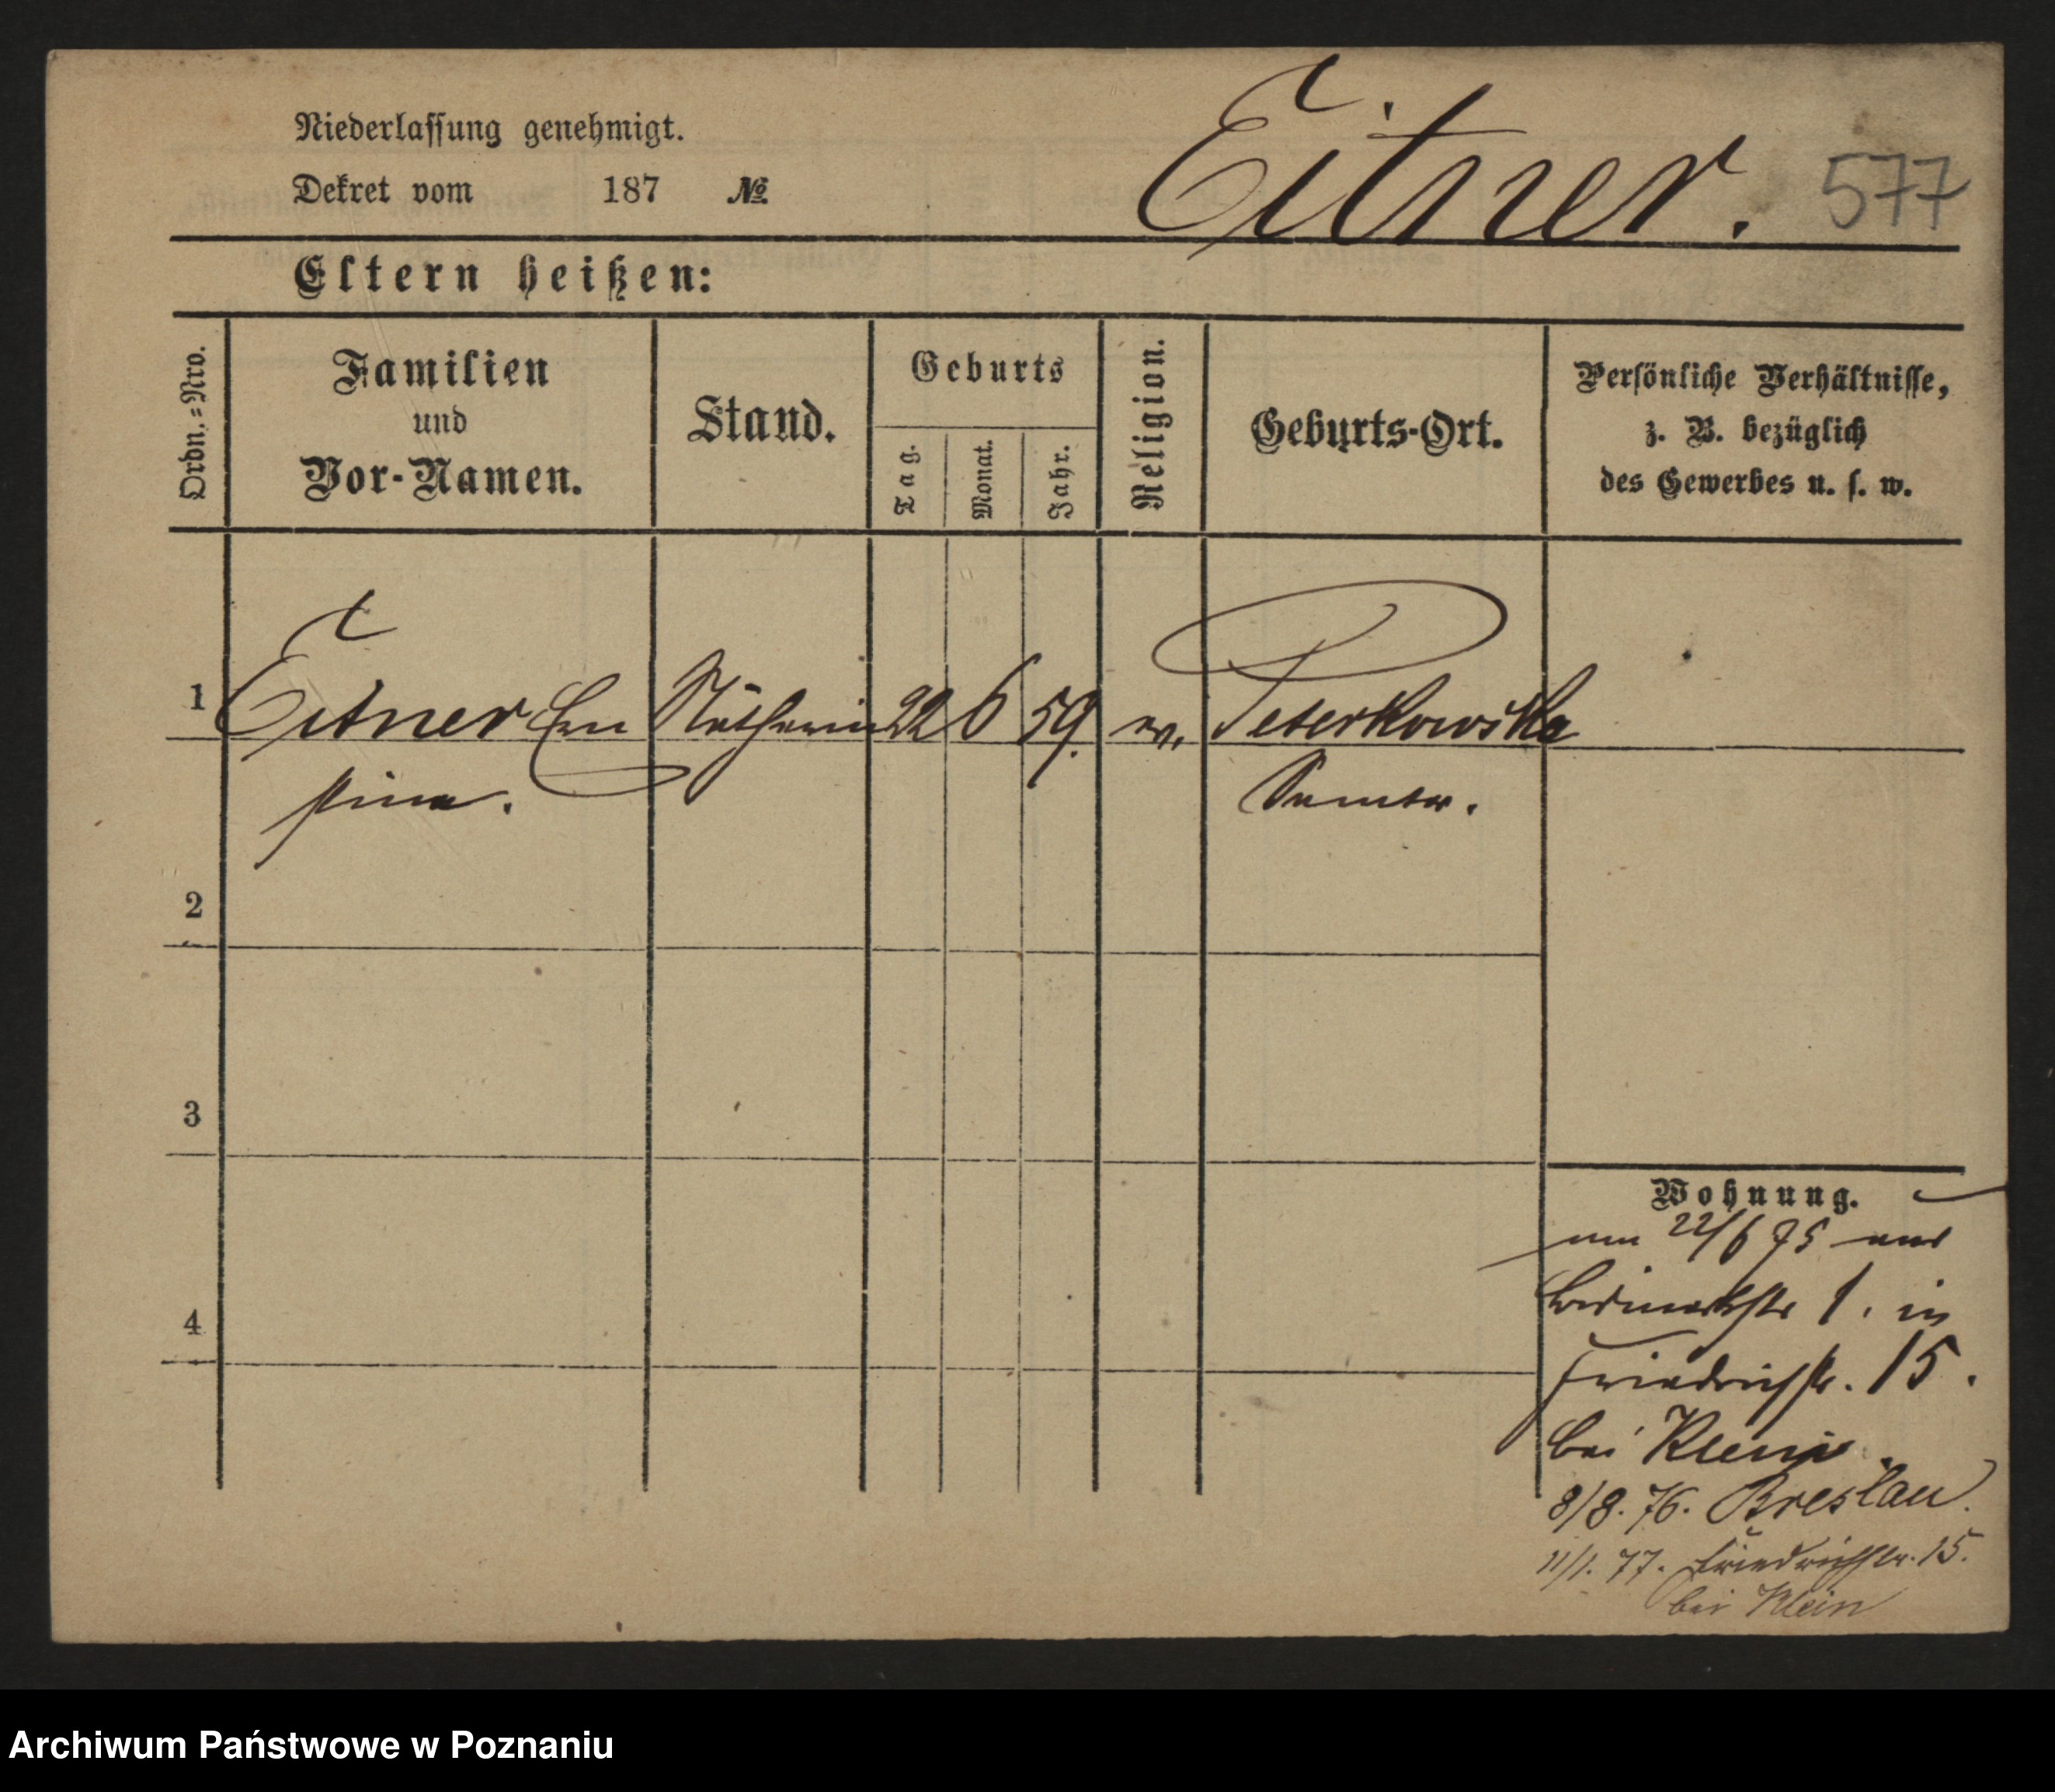 Niederlassung genehmigt.
Dekret vom 187 №
Eitner. 577
Eltern heißen:
Ordn.=Nro.
Familien
und
Vor-Namen.
Stand.
Geburts
Tag.
Monat.
Jahr.
Religion.
Geburts-Ort.
Persönliche Verhältnisse,
z. B. bezüglich
des Gewerbes u. s. w.
1 Eitner Ern Nätherin 22 6 59. ev. Peterkowška
stine. Samter.
2
3
4
Wohnung.
22/6 75 aus
1. in
Friedrichstr. 15.
bei Klein.
8/8. 76. Breslau.
11/1. 77. Friedrichstr. 15.
bei Klein
Archiwum Państwowe w Poznaniu